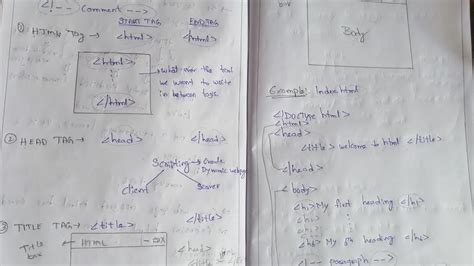 <!-- Comment -->
START TAG END TAG
① HTML Tag → <html> </html>
<html>
</html>
→ what ever the text
we want to write
in between tags
② HEAD TAG → <head> </head>
Scripting → Create
Dynamic webpage
Client Server
③ TITLE TAG → <title> </title>
Title
box
HTML - X
box
Body
Example: Index.html
<!DOCType html>
<html>
<head>
<title> welcome to html </title>
</head>
<body>
<h1> My first heading </h1>
<h6> My 6th heading </h6>
<!-- paragraph -->